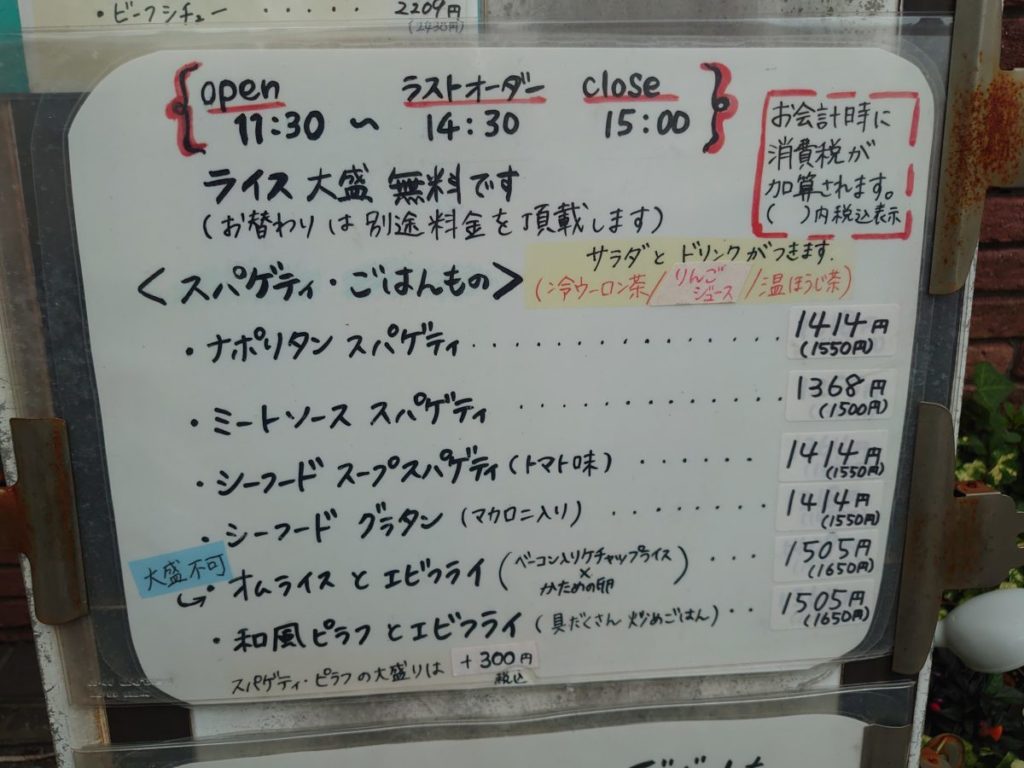 ・ビーフシチュー ・・・・・ 2209円
(2430円)
open ラストオーダー close
11:30 〜 14:30 15:00
お会計時に
消費税が
加算されます。
( )内税込表示
ライス大盛 無料です
(お替わりは別途料金を頂載します)
サラダと ドリンクがつきます.
(冷ウーロン茶/りんごジュース/温ほうじ茶)
<スパゲティ・ごはんもの>
・ナポリタン スパゲティ ・・・・・・・・・・・・ 1414円
(1550円)
・ミートソース スパゲティ ・・・・・・・・・・・・ 1368円
(1500円)
・シーフード スープスパゲティ(トマト味) ・・・・・・ 1414円
(1550円)
・シーフード グラタン (マカロニ入り) ・・・・・・・ 1414円
(1550円)
大盛不可
・オムライス と エビフライ (ベーコン入りケチャップライス×かための卵) ・・・ 1505円
(1650円)
・和風ピラフ と エビフライ (具だくさん 炒めごはん) ・・ 1505円
(1650円)
スパゲティ・ピラフの大盛りは +300円
税込